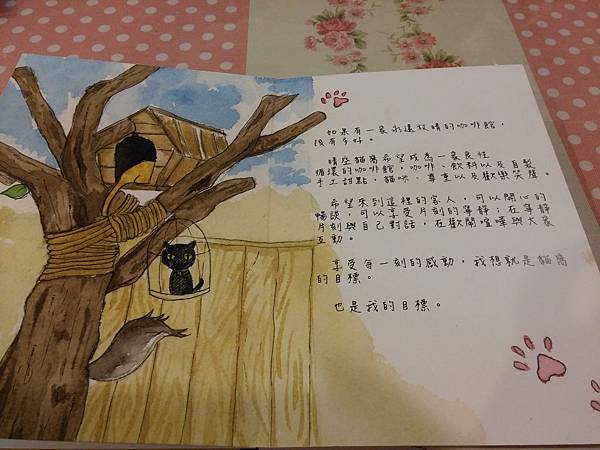 如果有一家永遠放晴的咖啡館，
該有多好。
晴座貓窩希望成為一家良性
循環的咖啡館，咖啡、飲料以及自製
手工甜點，貓咪、尊重以及歡樂笑聲。
希望來到這裡的客人，可以開心的
暢談，可以享受片刻的寧靜；在寧靜
片刻與自己對話，在歡鬧喧嘩與大家
互動。
享受每一刻的感動，我想就是貓窩
的目標。
也是我的目標。